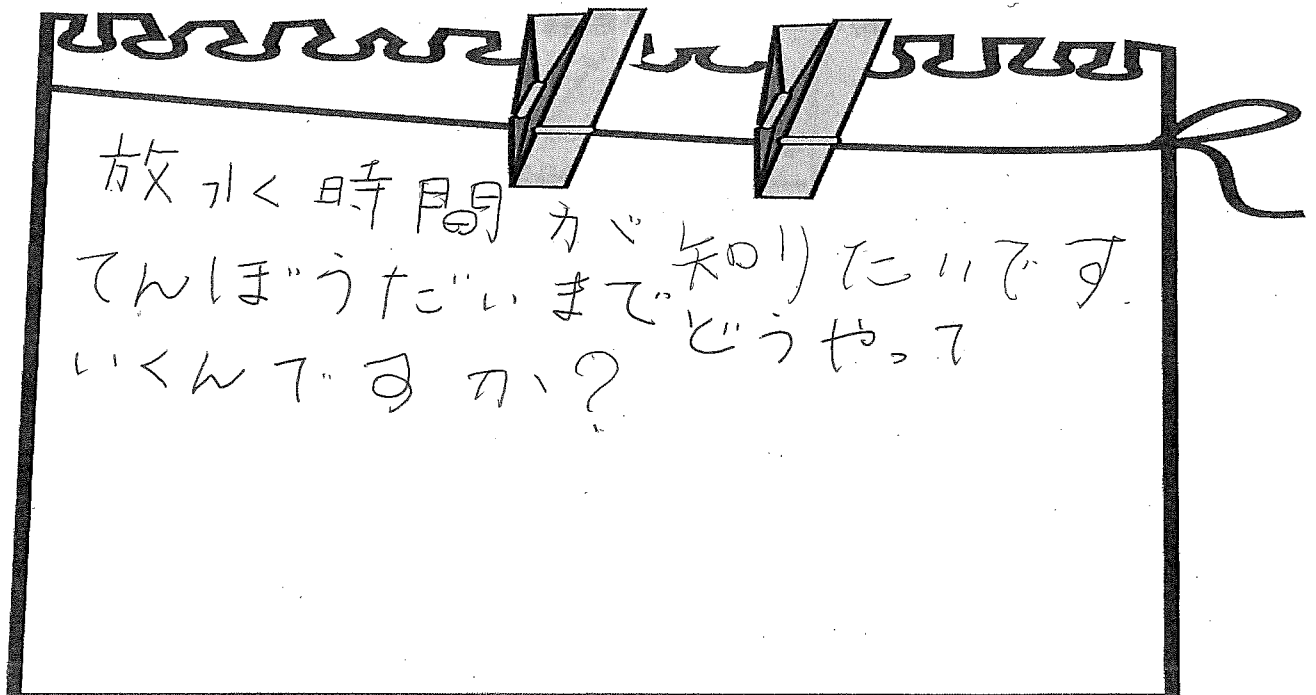 放水時間が知りたいです.
てんぼうだいまでどうやって
いくんですか?